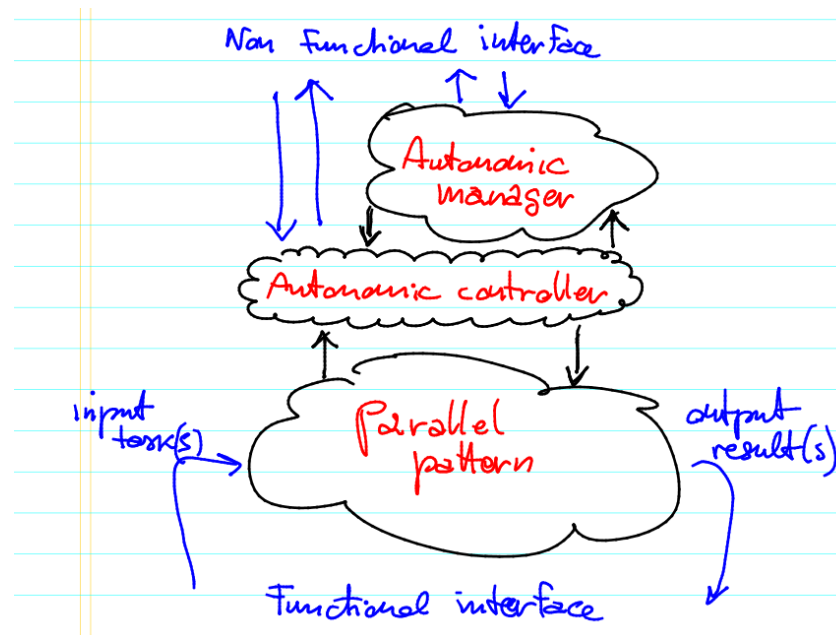 Non functional interface
Autonomic
manager
Autonomic controller
input
task(s)
Parallel
pattern
output
result(s)
Functional interface